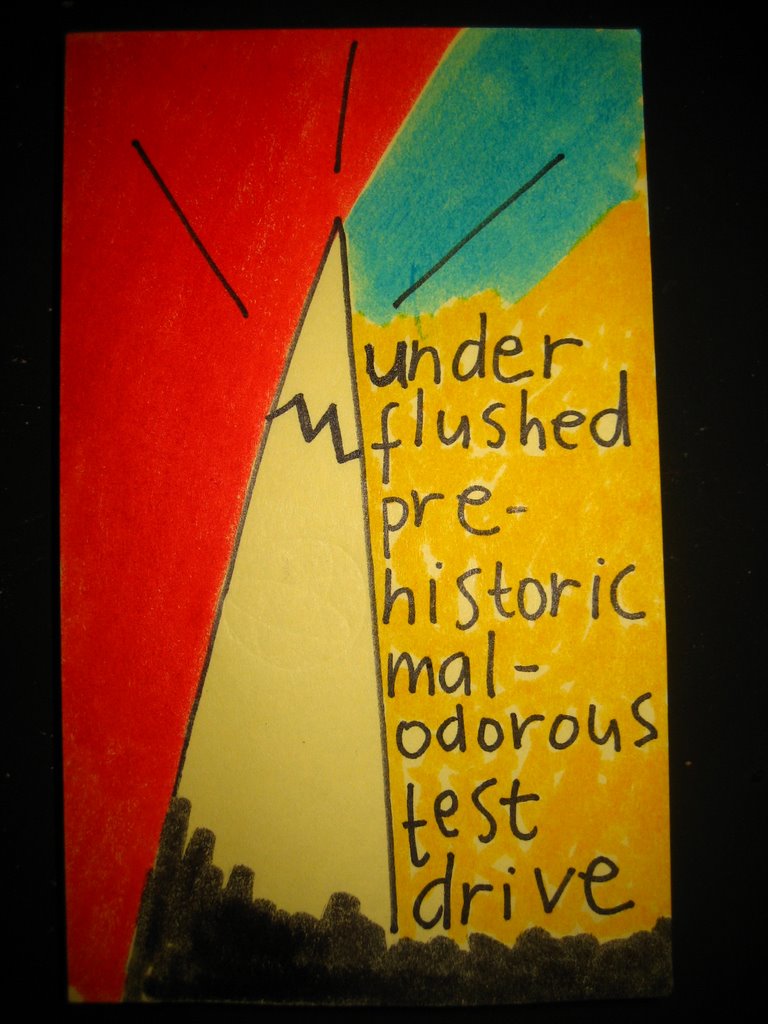 under
flushed
pre-
historic
mal-
odorous
test
drive